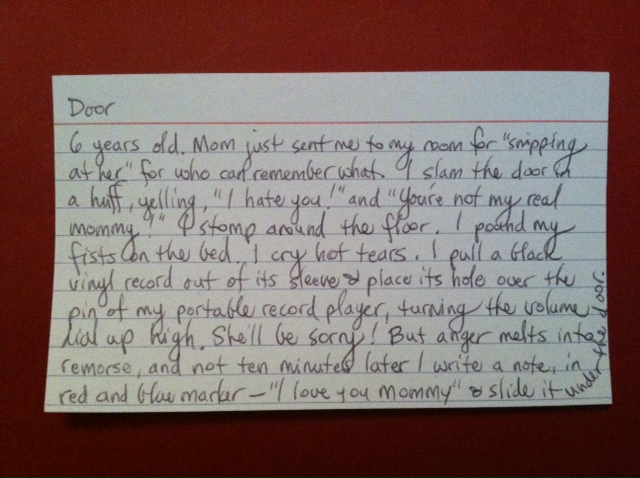 Door
6 years old. Mom just sent me to my room for "snipping
at her" for who can remember what. I slam the door in
a huff, yelling, "I hate you!" and "You're not my real
mommy!" I stomp around the floor. I pound my
fists on the bed. I cry hot tears. I pull a black
vinyl record out of its sleeve & place its hole over the
pin of my portable record player, turning the volume
dial up high. She'll be sorry! But anger melts into
remorse, and not ten minutes later I write a note, in
red and blue marker – "I love you Mommy" & slide it
under the door.